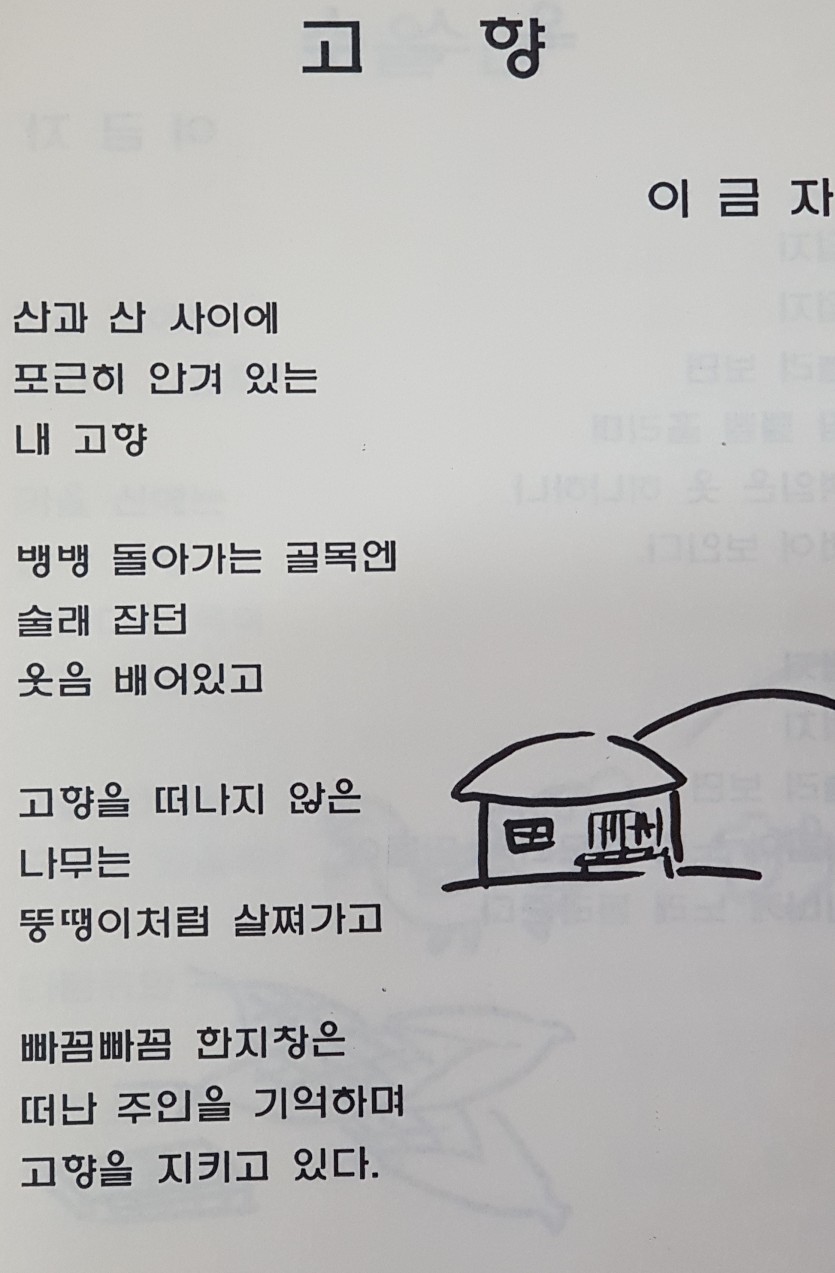 고 향
이 금 자
산과 산 사이에
포근히 안겨 있는
내 고향
뱅뱅 돌아가는 골목엔
술래 잡던
웃음 배어있고
고향을 떠나지 않은
나무는
뚱땡이처럼 살쪄가고
빠꼼빠꼼 한지창은
떠난 주인을 기억하며
고향을 지키고 있다.